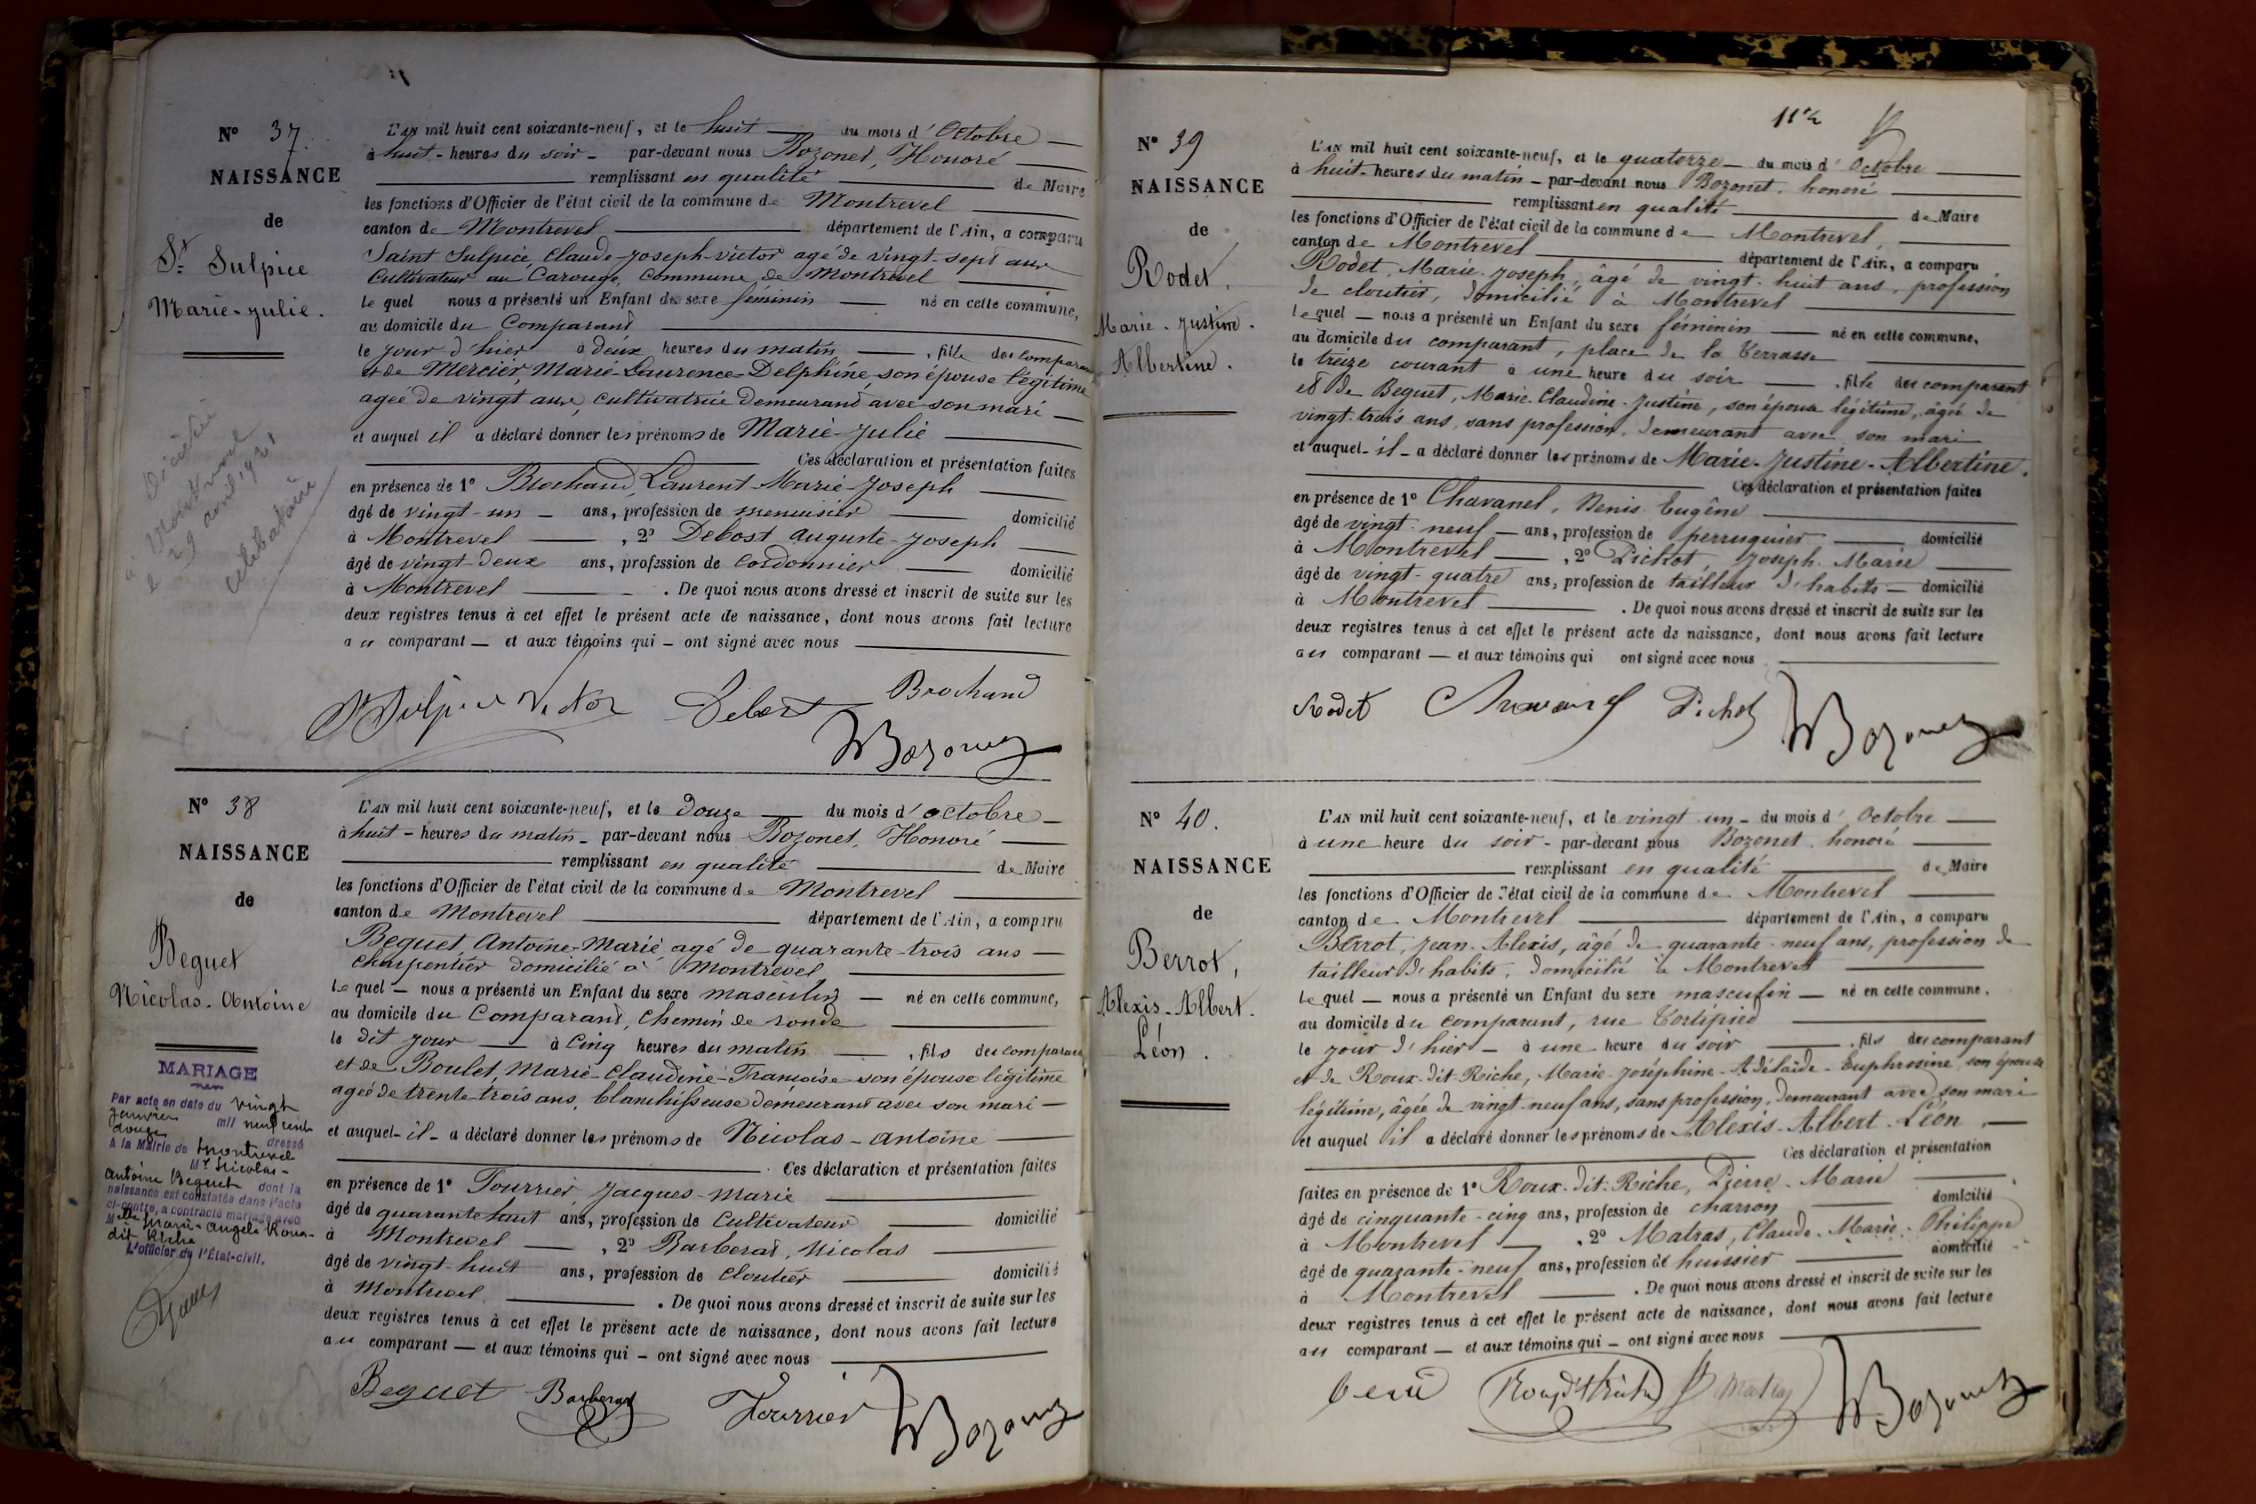 N° 37.
NAISSANCE
de
St Sulpice
Marie-Julie.
Décédée
à Montrevel
le 29 avril
célibataire
L'AN mil huit cent soixante-neuf, et le huit du mois d'Octobre
à huit - heures du soir - par-devant nous Bozonet, Honoré
remplissant en qualité de Maire
les fonctions d'Officier de l'état civil de la commune de Montrevel
canton de Montrevel département de l'Ain, a comparu
Saint Sulpice, Claude-Joseph-Victor agé de vingt-sept ans
Cultivateur au Carouge, Commune de Montrevel
le quel nous a présenté un Enfant du sexe féminin né en cette commune,
au domicile du Comparant
le jour d'hier à deux heures du matin, fille du comparant
et de Mercier, Marie-Laurence-Delphine, son épouse légitime
agée de vingt ans, cultivatrice demeurant avec son mari
et auquel il a déclaré donner les prénoms de Marie-Julie
Ces déclaration et présentation faites
en présence de 1° Brochand, Laurent-Marie-Joseph
âgé de vingt-un - ans, profession de menuisier domicilié
à Montrevel, 2° Debost Auguste-Joseph
âgé de vingt-deux ans, profession de Cordonnier domicilié
à Montrevel. De quoi nous avons dressé et inscrit de suite sur les
deux registres tenus à cet effet le présent acte de naissance, dont nous avons fait lecture
au comparant — et aux témoins qui - ont signé avec nous
St Sulpice Victor Debost Brochand
Bozonet
N° 38
NAISSANCE
de
Beguet
Nicolas-Antoine
MARIAGE
Par acte en date du vingt
janvier mil neuf cent
douze dressé
à la Mairie de Montrevel
Mr Nicolas-
Antoine Beguet dont la
naissance est constatée dans l'acte
ci-contre, a contracté mariage avec
Melle Marie-Angele Roux-
dit Riche
L'officier de l'État-civil,
L'AN mil huit cent soixante-neuf, et le douze du mois d'octobre
à huit - heures du matin - par-devant nous Bozonet, Honoré
remplissant en qualité de Maire
les fonctions d'Officier de l'état civil de la commune de Montrevel
canton de Montrevel département de l'Ain, a comparu
Beguet Antoine-Marie agé de quarante-trois ans
charpentier domicilié à Montrevel
le quel — nous a présenté un Enfant du sexe masculin — né en cette commune,
au domicile du Comparant, chemin de ronde
le dit jour — à cinq heures du matin, fils du comparant
et de Boulet, Marie-Claudine-Françoise son épouse légitime
agée de trente-trois ans, blanchisseuse demeurant avec son mari
et auquel - il - a déclaré donner les prénoms de Nicolas-Antoine
Ces déclaration et présentation faites
en présence de 1° Fourrier Jacques-Marie
âgé de quarante huit ans, profession de Cultivateur domicilié
à Montrevel, 2° Barberat, Nicolas
âgé de vingt-huit ans, profession de Cloutier domicilié
à Montrevel. De quoi nous avons dressé et inscrit de suite sur les
deux registres tenus à cet effet le présent acte de naissance, dont nous avons fait lecture
au comparant — et aux témoins qui - ont signé avec nous
Beguet Barberat Fourrier Bozonet
N° 39
NAISSANCE
de
Rodet.
Marie-Justine.
Albertine.
L'AN mil huit cent soixante-neuf, et le quatorze - du mois d'Octobre
à huit - heures du matin - par-devant nous Bozonet, honoré
remplissant en qualité de Maire
les fonctions d'Officier de l'état civil de la commune de Montrevel,
canton de Montrevel département de l'Ain, a comparu
Rodet, Marie-Joseph, âgé de vingt-huit ans, profession
de cloutier, domicilié à Montrevel
le quel — nous a présenté un Enfant du sexe féminin — né en cette commune,
au domicile du comparant, place de la Terrasse
le treize courant à une heure du soir, fille du comparant
et de Beguet, Marie-Claudine-Justine, son épouse légitime, âgée de
vingt-trois ans, sans profession, demeurant avec son mari
et auquel - il - a déclaré donner les prénoms de Marie-Justine-Albertine.
Ces déclaration et présentation faites
en présence de 1° Chavanel, Denis Eugène
âgé de vingt-neuf - ans, profession de perruquier domicilié
à Montrevel, 2° Pichot, Joseph-Marie
âgé de vingt-quatre ans, profession de tailleur d'habits — domicilié
à Montrevel. De quoi nous avons dressé et inscrit de suite sur les
deux registres tenus à cet effet le présent acte de naissance, dont nous avons fait lecture
au comparant — et aux témoins qui ont signé avec nous
Rodet Chavanel Pichot Bozonet
N° 40.
NAISSANCE
de
Berrot,
Alexis-Albert.
Léon.
L'AN mil huit cent soixante-neuf, et le vingt-un - du mois d'Octobre
à une heure du soir - par-devant nous Bozonet, honoré
remplissant en qualité de Maire
les fonctions d'Officier de l'état civil de la commune de Montrevel
canton de Montrevel département de l'Ain, a comparu
Berrot, Jean-Alexis, âgé de quarante-neuf ans, profession de
tailleur d'habits, domicilié à Montrevel
le quel — nous a présenté un Enfant du sexe masculin — né en cette commune.
au domicile du comparant, rue Tortipied
le jour d'hier - à une heure du soir, fils du comparant
et de Roux-dit-Riche, Marie-Joséphine-Adélaïde-Euphrosine, son épouse
légitime, âgée de vingt-neuf ans, sans profession, demeurant avec son mari
et auquel il a déclaré donner les prénoms de Alexis-Albert-Léon,
Ces déclaration et présentation
faites en présence de 1° Roux-dit-Riche, Pierre-Marie
âgé de cinquante-cinq ans, profession de charron domicilié
à Montrevel, 2° Matras, Claude-Marie-Philippe
âgé de quarante-neuf ans, profession de huissier domicilié
à Montrevel. De quoi nous avons dressé et inscrit de suite sur les
deux registres tenus à cet effet le présent acte de naissance, dont nous avons fait lecture
au comparant — et aux témoins qui - ont signé avec nous
Roux dit Riche Matras Bozonet